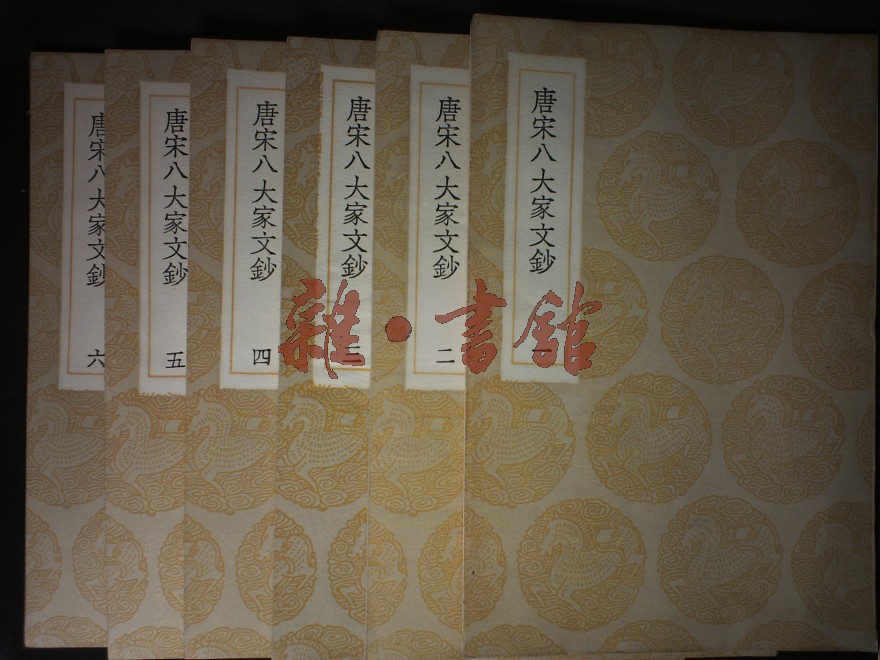 唐宋八大家文鈔 一
唐宋八大家文鈔 二
唐宋八大家文鈔 三
唐宋八大家文鈔 四
唐宋八大家文鈔 五
唐宋八大家文鈔 六
雜·書館